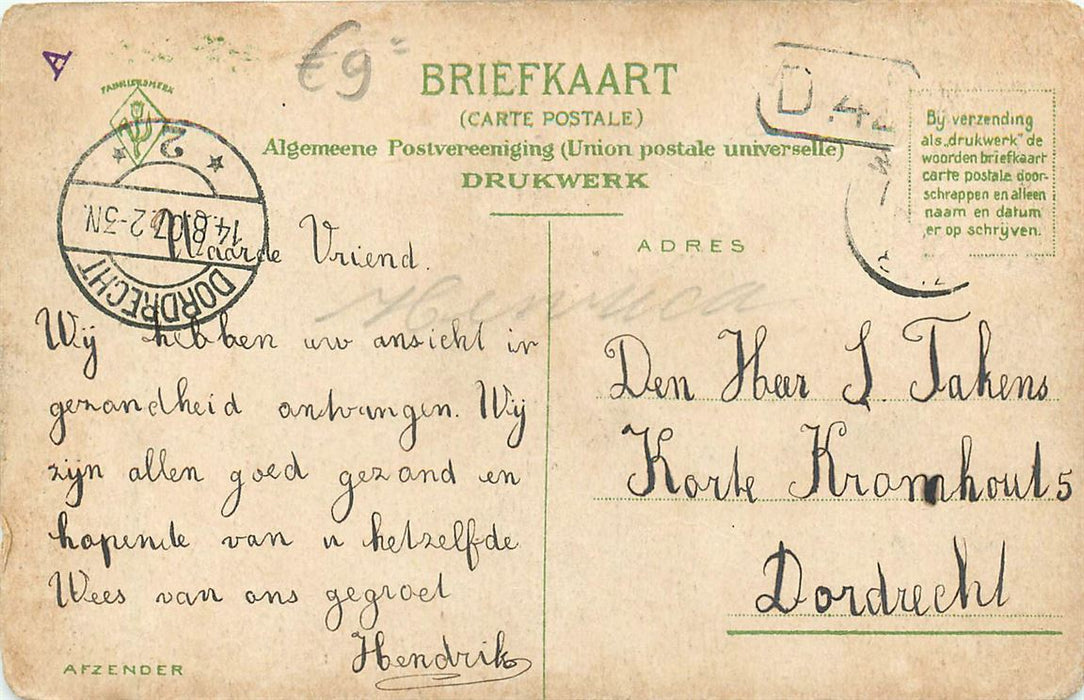 A
€9=
FABRIEKSMERK
BRIEFKAART
(CARTE POSTALE)
Algemeene Postvereeniging (Union postale universelle)
DRUKWERK
D 4
Bij verzending
als „drukwerk" de
woorden briefkaart
carte postale door-
schrappen en alleen
naam en datum
er op schrijven.
DORDRECHT
14.8.07. 2-3N.
2
ADRES
Waarde Vriend.
Wij hebben uw ansicht in
gezondheid ontvangen. Wij
zijn allen goed gezond en
hopende van u hetzelfde
Wees van ons gegroet
Hendrik
AFZENDER
Den Heer S. Takens
Korte Kromhout 5
Dordrecht